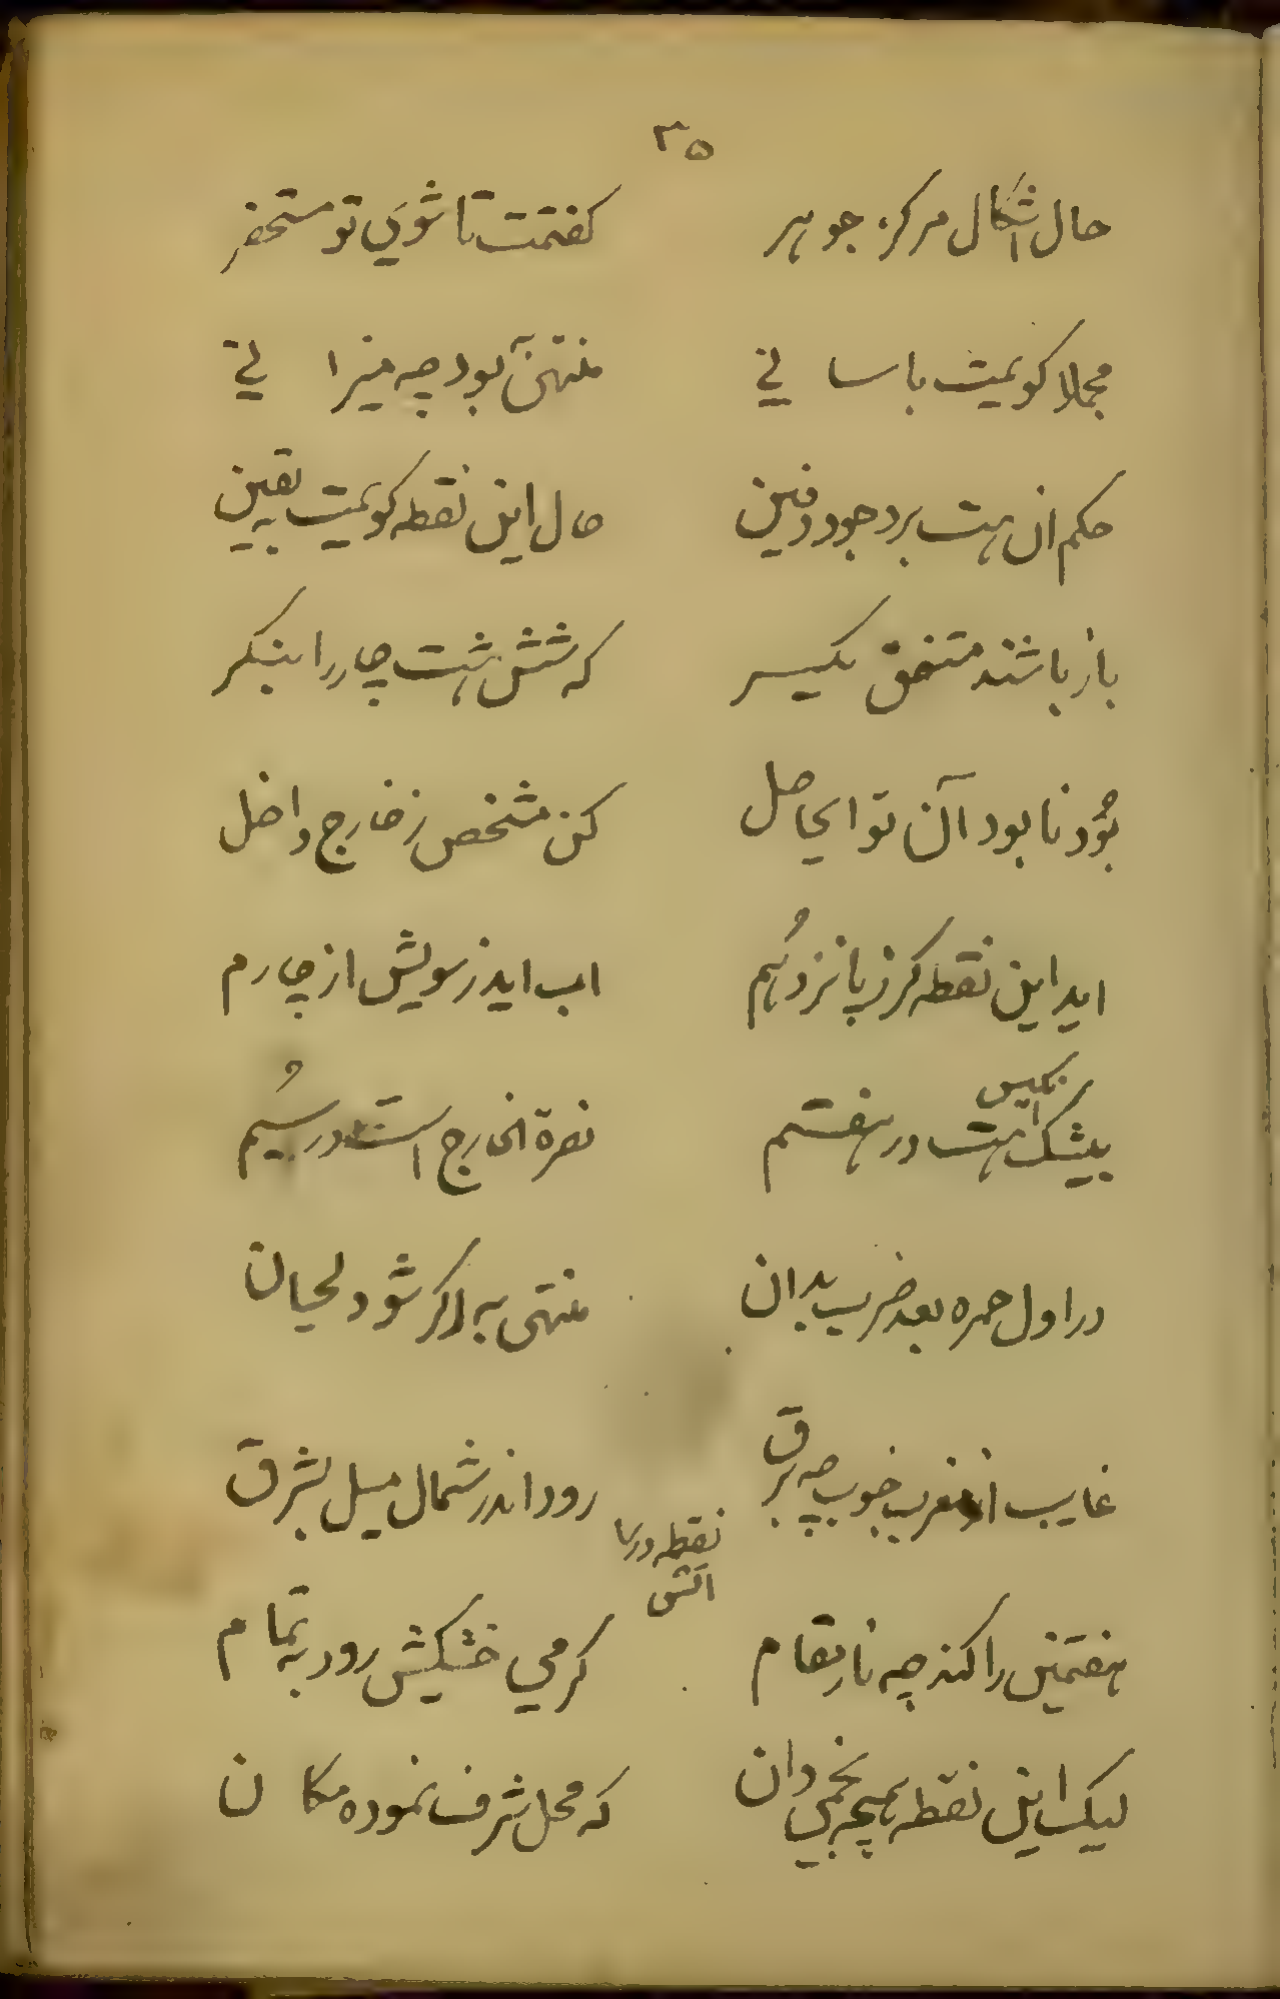 ۳۵
حال اشکال مرکز جوهر کفتمت تا شوی تو مستحضر
مجملا کویمت باسا نی منتهی بود چه میزا نی
حکم ان هست بر وجود دفین حال این نقطه کویمت به یقین
باز باشند متفق یکسر که شش هشت چار را بنکر
بُود نابود آن تو ایحاصل کن مشخص ز خارج داخل
اید این نقطه کرز پانزدهُم اب اید ز سویش از چارم
بیشک هست در هفتم نصرة الخارج است در سیُم
در اول حمره بعد ضرب بدان منتهی به اکر شود لحیان
غایب از مغرب خوب چه برق رود اندر شمال میل بشرق
نقطه در
اتش
هفتمین را کند چه نار مقام کرمی خشکیش رود به تمام
لیک این نقطه همچه نجمی دان که محل شرف نموده مکا ن